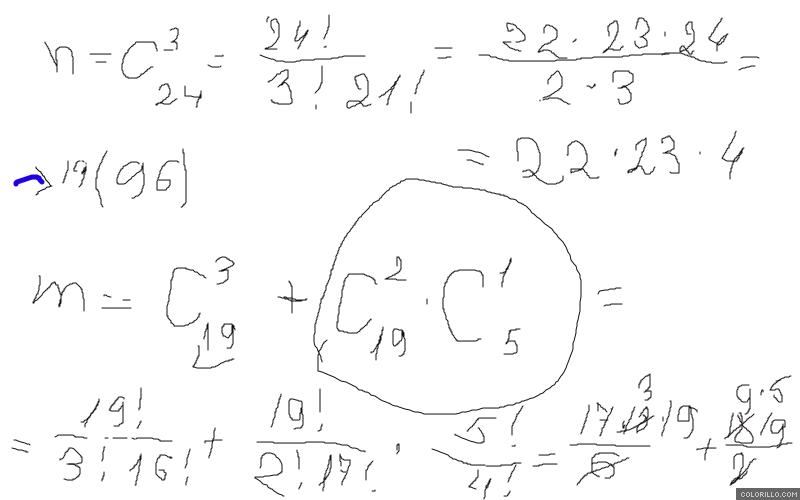 n = C_{24}^{3} = \frac{24!}{3! 21!} = \frac{22 \cdot 23 \cdot 24}{2 \cdot 3} =
= 22 \cdot 23 \cdot 4
19 ( 96 )
m = C_{19}^{3} + C_{19}^{2} \cdot C_{5}^{1} =
= \frac{19!}{3! 16!} + \frac{19!}{2! 17!} \cdot \frac{5!}{4!} = \frac{17 \cdot 18 3 \cdot 19}{6} + \frac{9 \cdot 5 18 19}{2}
COLORILLO.COM